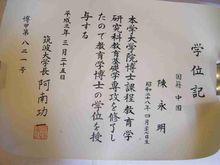 学位記
国籍 中国
陳永明
昭和二十八年四月二十六日生
本学大学院博士課程教育学
研究科教育基礎学専攻を修了し
たので教育学博士の学位を授
与する
平成三年三月二十五日
筑波大学長 阿南功一
博甲第八二一号